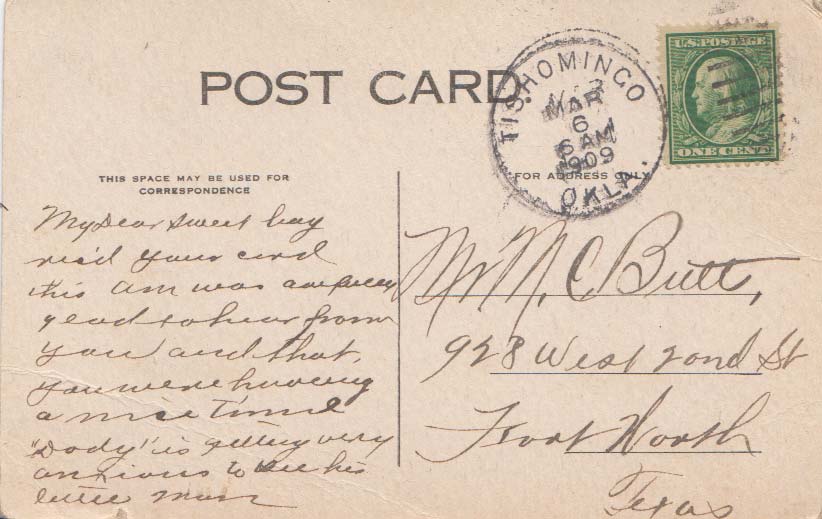 POST CARD.
TISHOMINGO
MAR
6
6 AM
1909
OKLA.
U.S. POSTAGE
ONE CENT
THIS SPACE MAY BE USED FOR
CORRESPONDENCE
FOR ADDRESS ONLY
My Dear sweet boy
rec'd your card
this am was
glad to hear from
you and that
you were having
a nice time
"Dody" is getting very
anxious to see his
little man
Mr M. C. Butt,
928 West 2ond St
Fort Worth
Texas